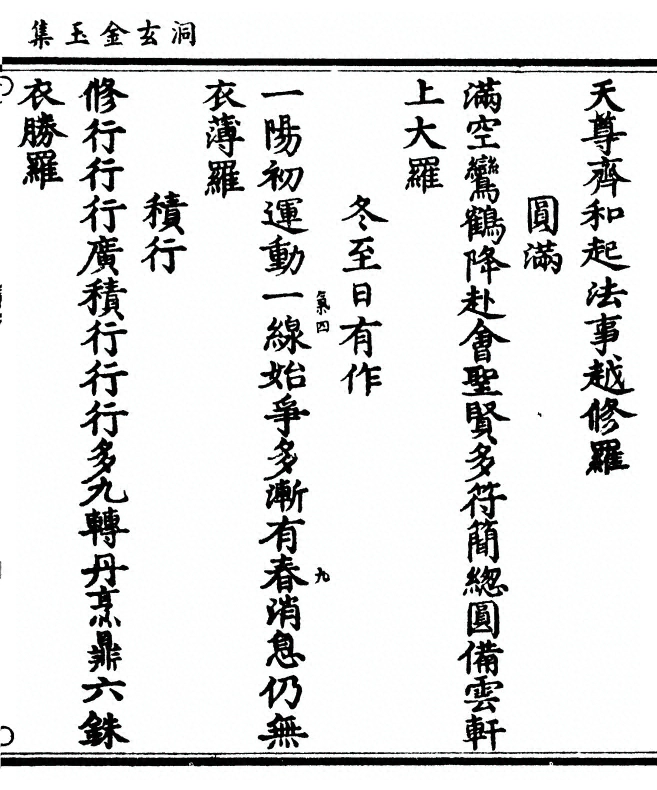 洞玄金玉集
天尊齊和起法事越修羅
圓滿
滿空鸞鶴降赴會聖賢多符簡總圓備雲軒
上大羅
冬至日有作
一陽初運動一線始爭多漸有春消息仍無
氣四
九
衣薄羅
積行
修行行行廣積行行行多九轉丹烹鼎六銖
衣勝羅